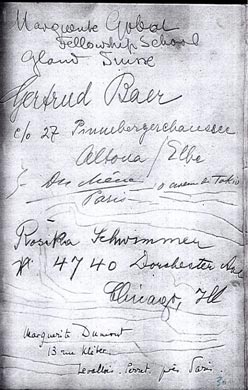 Marguerite Gobat
Fellowship School
Gland Suisse
Gertrud Baer
c/o 27 Pinnebergerchaussee
Altona / Elbe
Paris
Rosika Schwimmer
4740 Dorchester Ave
Chicago, Ill
Marguerite Dumont
13 rue Kléber
Levallois-Perret. près Paris.